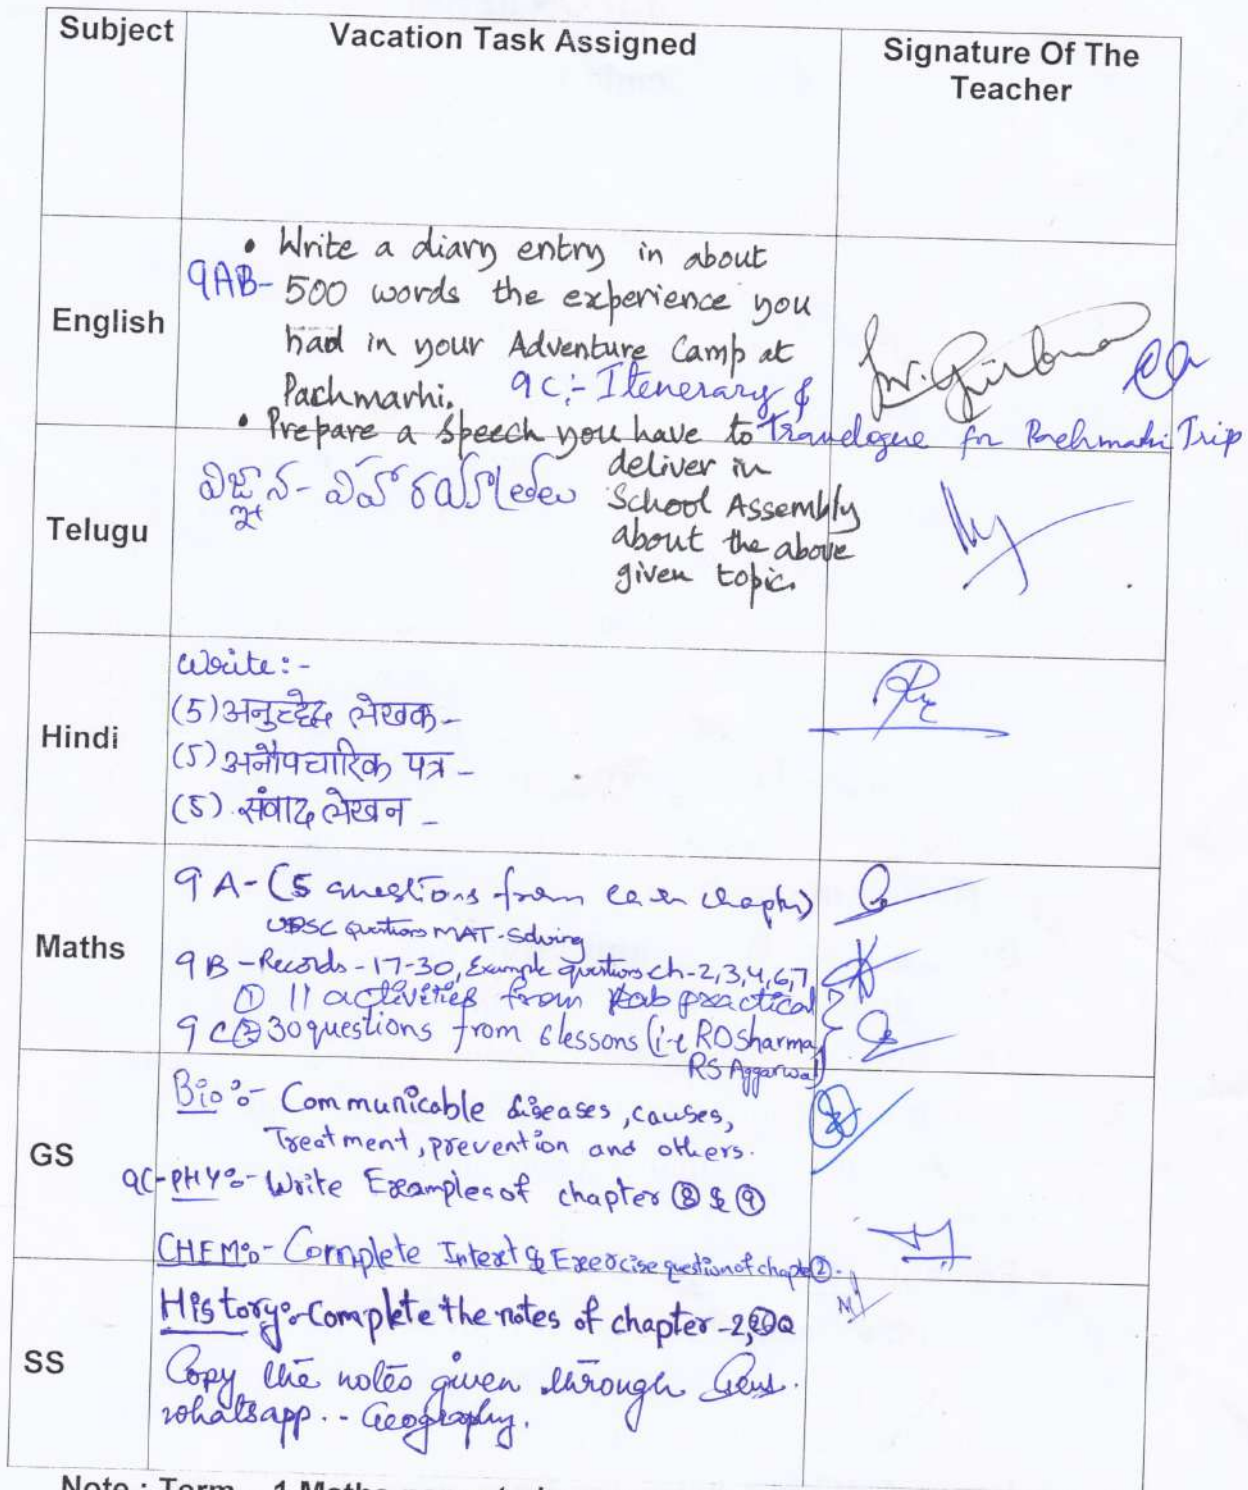 Subject
Vacation Task Assigned
Signature Of The
Teacher
English
• Write a diary entry in about
9AB- 500 words the experience you
had in your Adventure Camp at
Pachmarhi. 9C:- Itenerary &
• Prepare a speech you have to Travelogue for Pachmarhi Trip
deliver in
School Assembly
about the above
given topic.
Telugu
విజ్ఞాన- విహారయాత్ర
Hindi
Write:-
(5) अनुच्छेद लेखक-
(5) अनौपचारिक पत्र-
(5) संवाद लेखन-
Maths
9 A- (5 questions from each chapter)
UPSC Questions MAT-Solving
9 B - Records - 17-30, Example questions ch-2,3,4,6,7
① 11 activities from lab practical
9 C ② 30 questions from 6 lessons (i.e RD Sharma,
RS Aggarwal)
GS
Bio:- Communicable diseases, causes,
Treatment, prevention and others.
9C-PHY:- Write Examples of chapter ⑧ & ⑨
CHEM:- Complete Intext & Exercise question of chapter ②.
SS
History:- Complete the notes of chapter -2,
Copy the notes given through
whatsapp. - Geography.
Note : Term 1 Maths